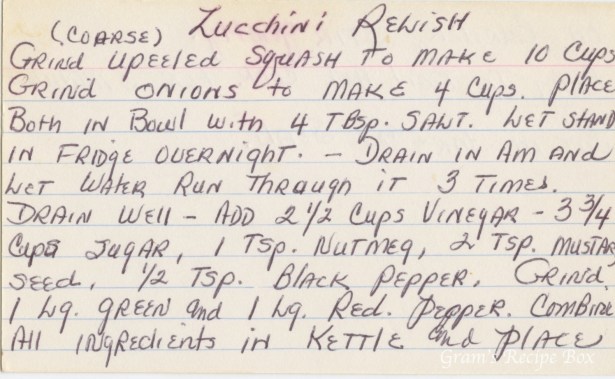 Zucchini Relish
(Coarse)
Grind upeeled Squash to make 10 Cups
Grind onions to make 4 Cups. Place
Both in Bowl with 4 Tbsp. Salt. Let stand
in Fridge overnight. - Drain in Am and
Let Water Run Through it 3 Times.
Drain Well - Add 2 1/2 Cups Vinegar - 3 3/4
Cups Sugar, 1 Tsp. Nutmeg, 2 Tsp. Mustar
Seed, 1/2 Tsp. Black Pepper. Grind
1 Lg. green and 1 Lg. Red. Pepper. Combine
All ingredients in Kettle and Place
Gram's Recipe Box